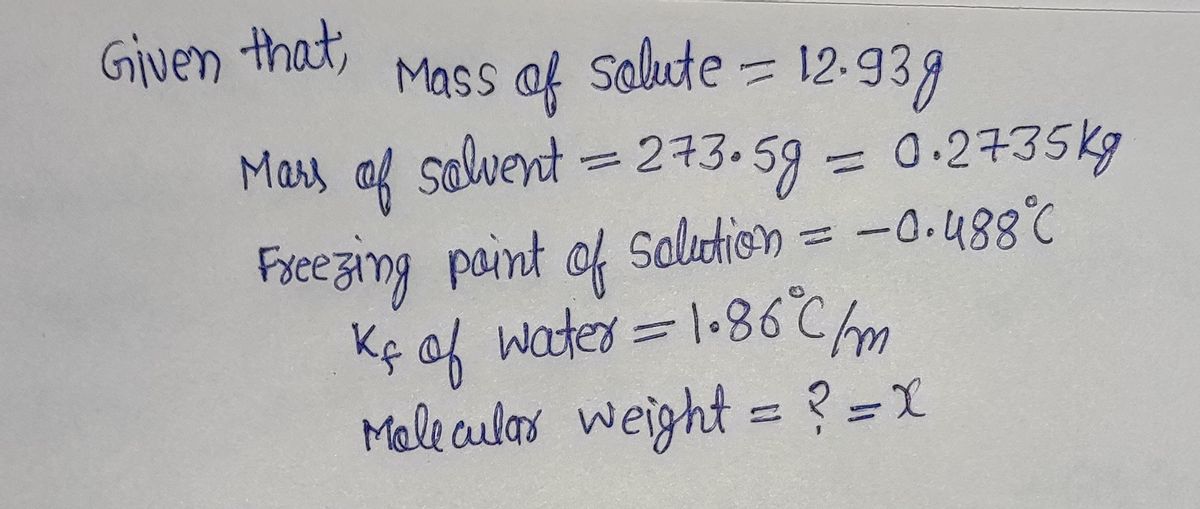 Given that, Mass of solute = 12.93g
Mass of solvent = 273.5g = 0.2735kg
Freezing point of solution = -0.488°C
Kf of water = 1.86°C/m
Molecular weight = ? = x